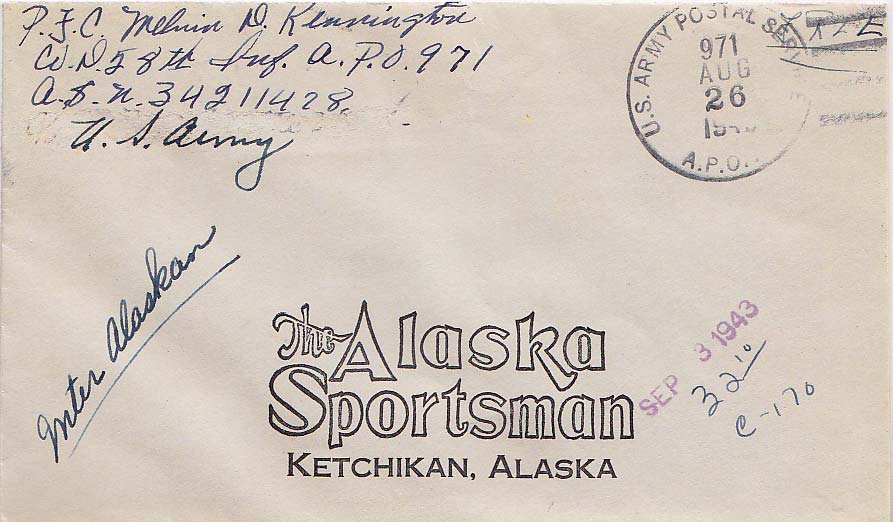 P.F.C. Melvin D. Kennington
Co. D 58th Inf. A.P.O. 971
A.S.N. 34211428
U.S. Army
FREE
U.S. ARMY POSTAL SERVICE
971
AUG
26
A.P.O.
Inter Alaskan
The Alaska
Sportsman
KETCHIKAN, ALASKA
SEP 3 1943
32¹⁰
C-170